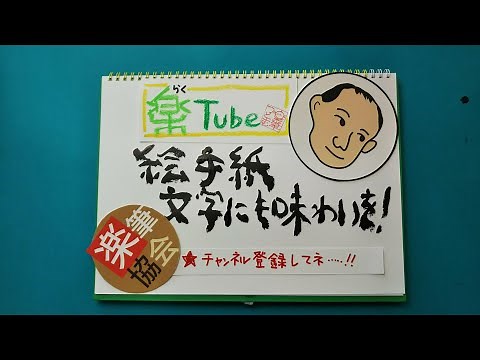 らく
楽 Tube
絵手紙
文字にも味わいを!
楽筆協会
★チャンネル登録してネ.....!!